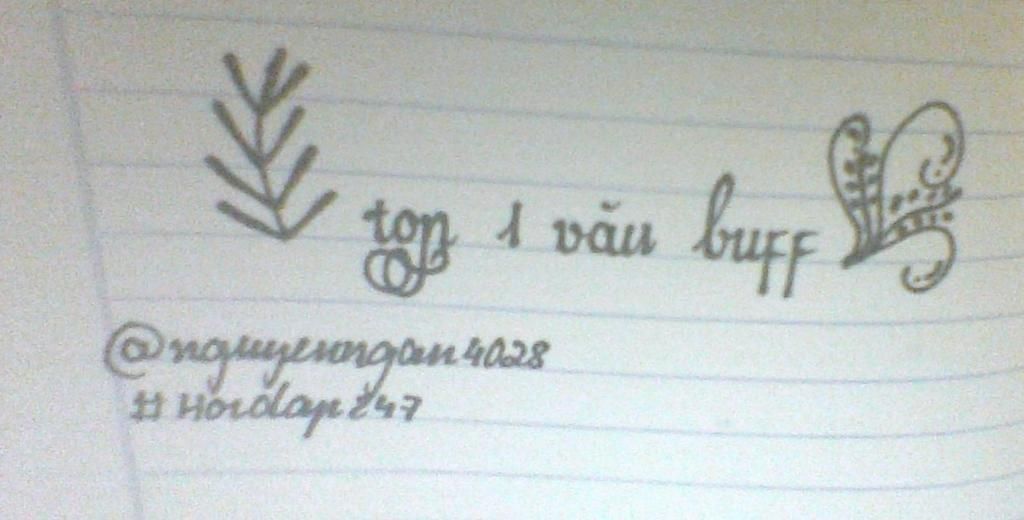 top 1 văn buff
@nguyenngan4028
#Hoidap247